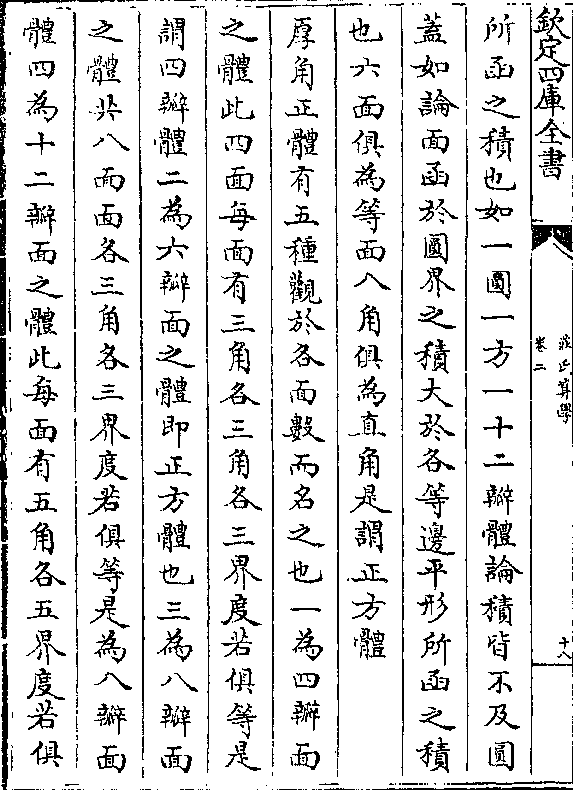 欽定四庫全書
莊氏算學
卷二
十八
所函之積也如一圓一方一十二瓣體論積皆不及圓
蓋如論面函於圓界之積大於各等邊平形所函之積
也六面俱為等面八角俱為直角是謂正方體
厚角正體有五種觀於各面數而名之也一為四瓣面
之體此四面每面有三角各三角各三界度若俱等是
謂四瓣體二為六瓣面之體即正方體也三為八瓣面
之體共八面面各三角各三界度若俱等是為八瓣面
體四為十二瓣面之體此每面有五角各五界度若俱